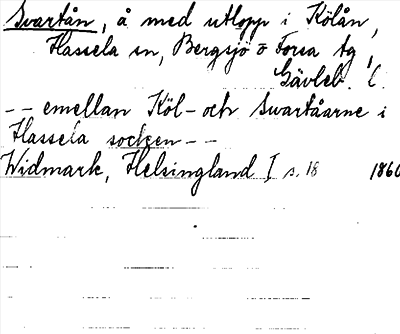 Svartån, å med utlopp i Kölån,
Hassela sn, Bergsjö o Forsa tg,
Gävleb. l.
-- emellan Köl- och Svartåarne i
Hassela socken --
Widmark, Helsingland I s. 18 1860